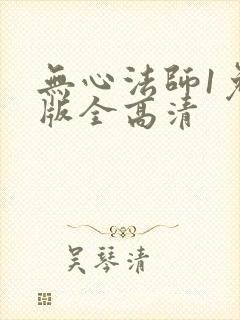 無心法師1免
版全高清
吴琴清